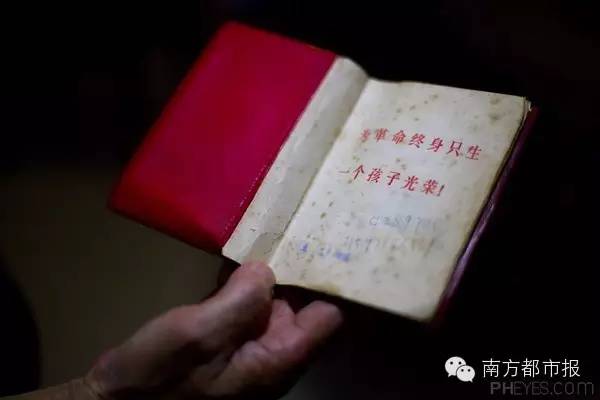 为革命终身只生
一个孩子光荣!
南方都市报
PHEYES.COM